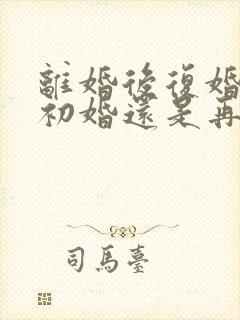 離婚後復婚
初婚還是再
司馬臺